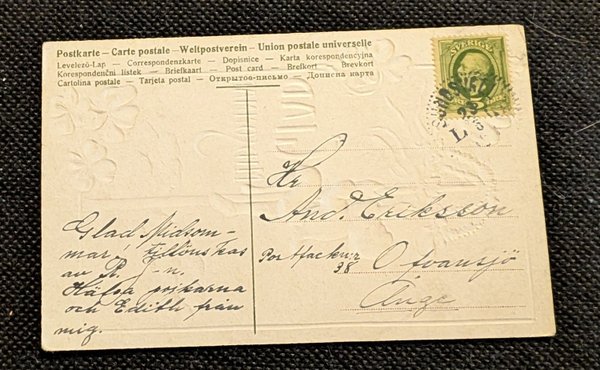 Postkarte – Carte postale – Weltpostverein – Union postale universelle
Levelező-Lap — Correspondenzkarte — Dopisnice — Karta korespondencyjna
Korespondenční listek — Briefkaart — Post card — Brefkort — Brevkort
Cartolina postale — Tarjeta postal — Открытое-письмо — Дописна карта
SVERIGE
23
L
Hr
And. Eriksson
Ofvansjö
Ånge
Glad Midsom-
mar! tillönskas
av R. J-n.
Hälsa pojkarna
och Edith från
mig.